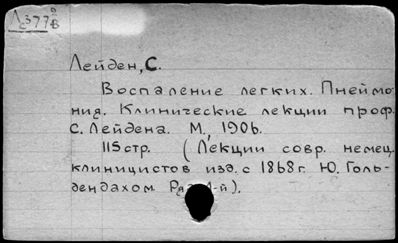 Лейден, С.
Воспаление легких. Пнеймо-
ния. Клинические лекции проф.
С. Лейдена. М., 1906.
115 стр. (Лекции совр. немец.
клиницистов изд. с 1868г. Ю. Голь-
дендахом